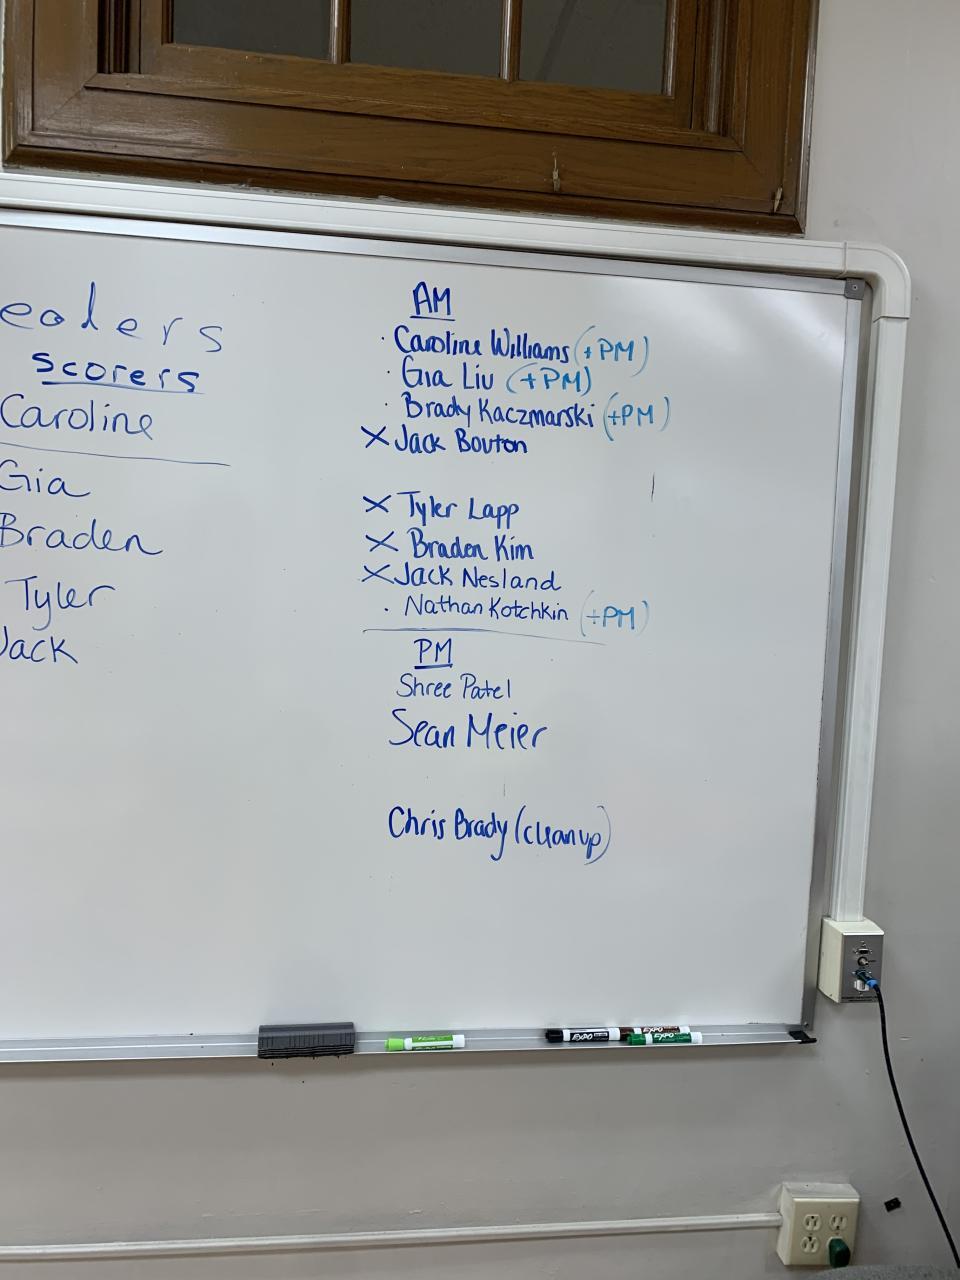 eolers
scorers
Caroline
Gia
Braden
Tyler
Jack
AM
· Caroline Williams (+PM)
· Gia Liu (+PM)
· Brady Kaczmarski (+PM)
X Jack Bouton
X Tyler Lapp
X Braden Kim
X Jack Nesland
· Nathan Kotchkin (+PM)
PM
Shree Patel
Sean Meier
Chris Brady (cleanup)
EXPO
EXPO
EXPO